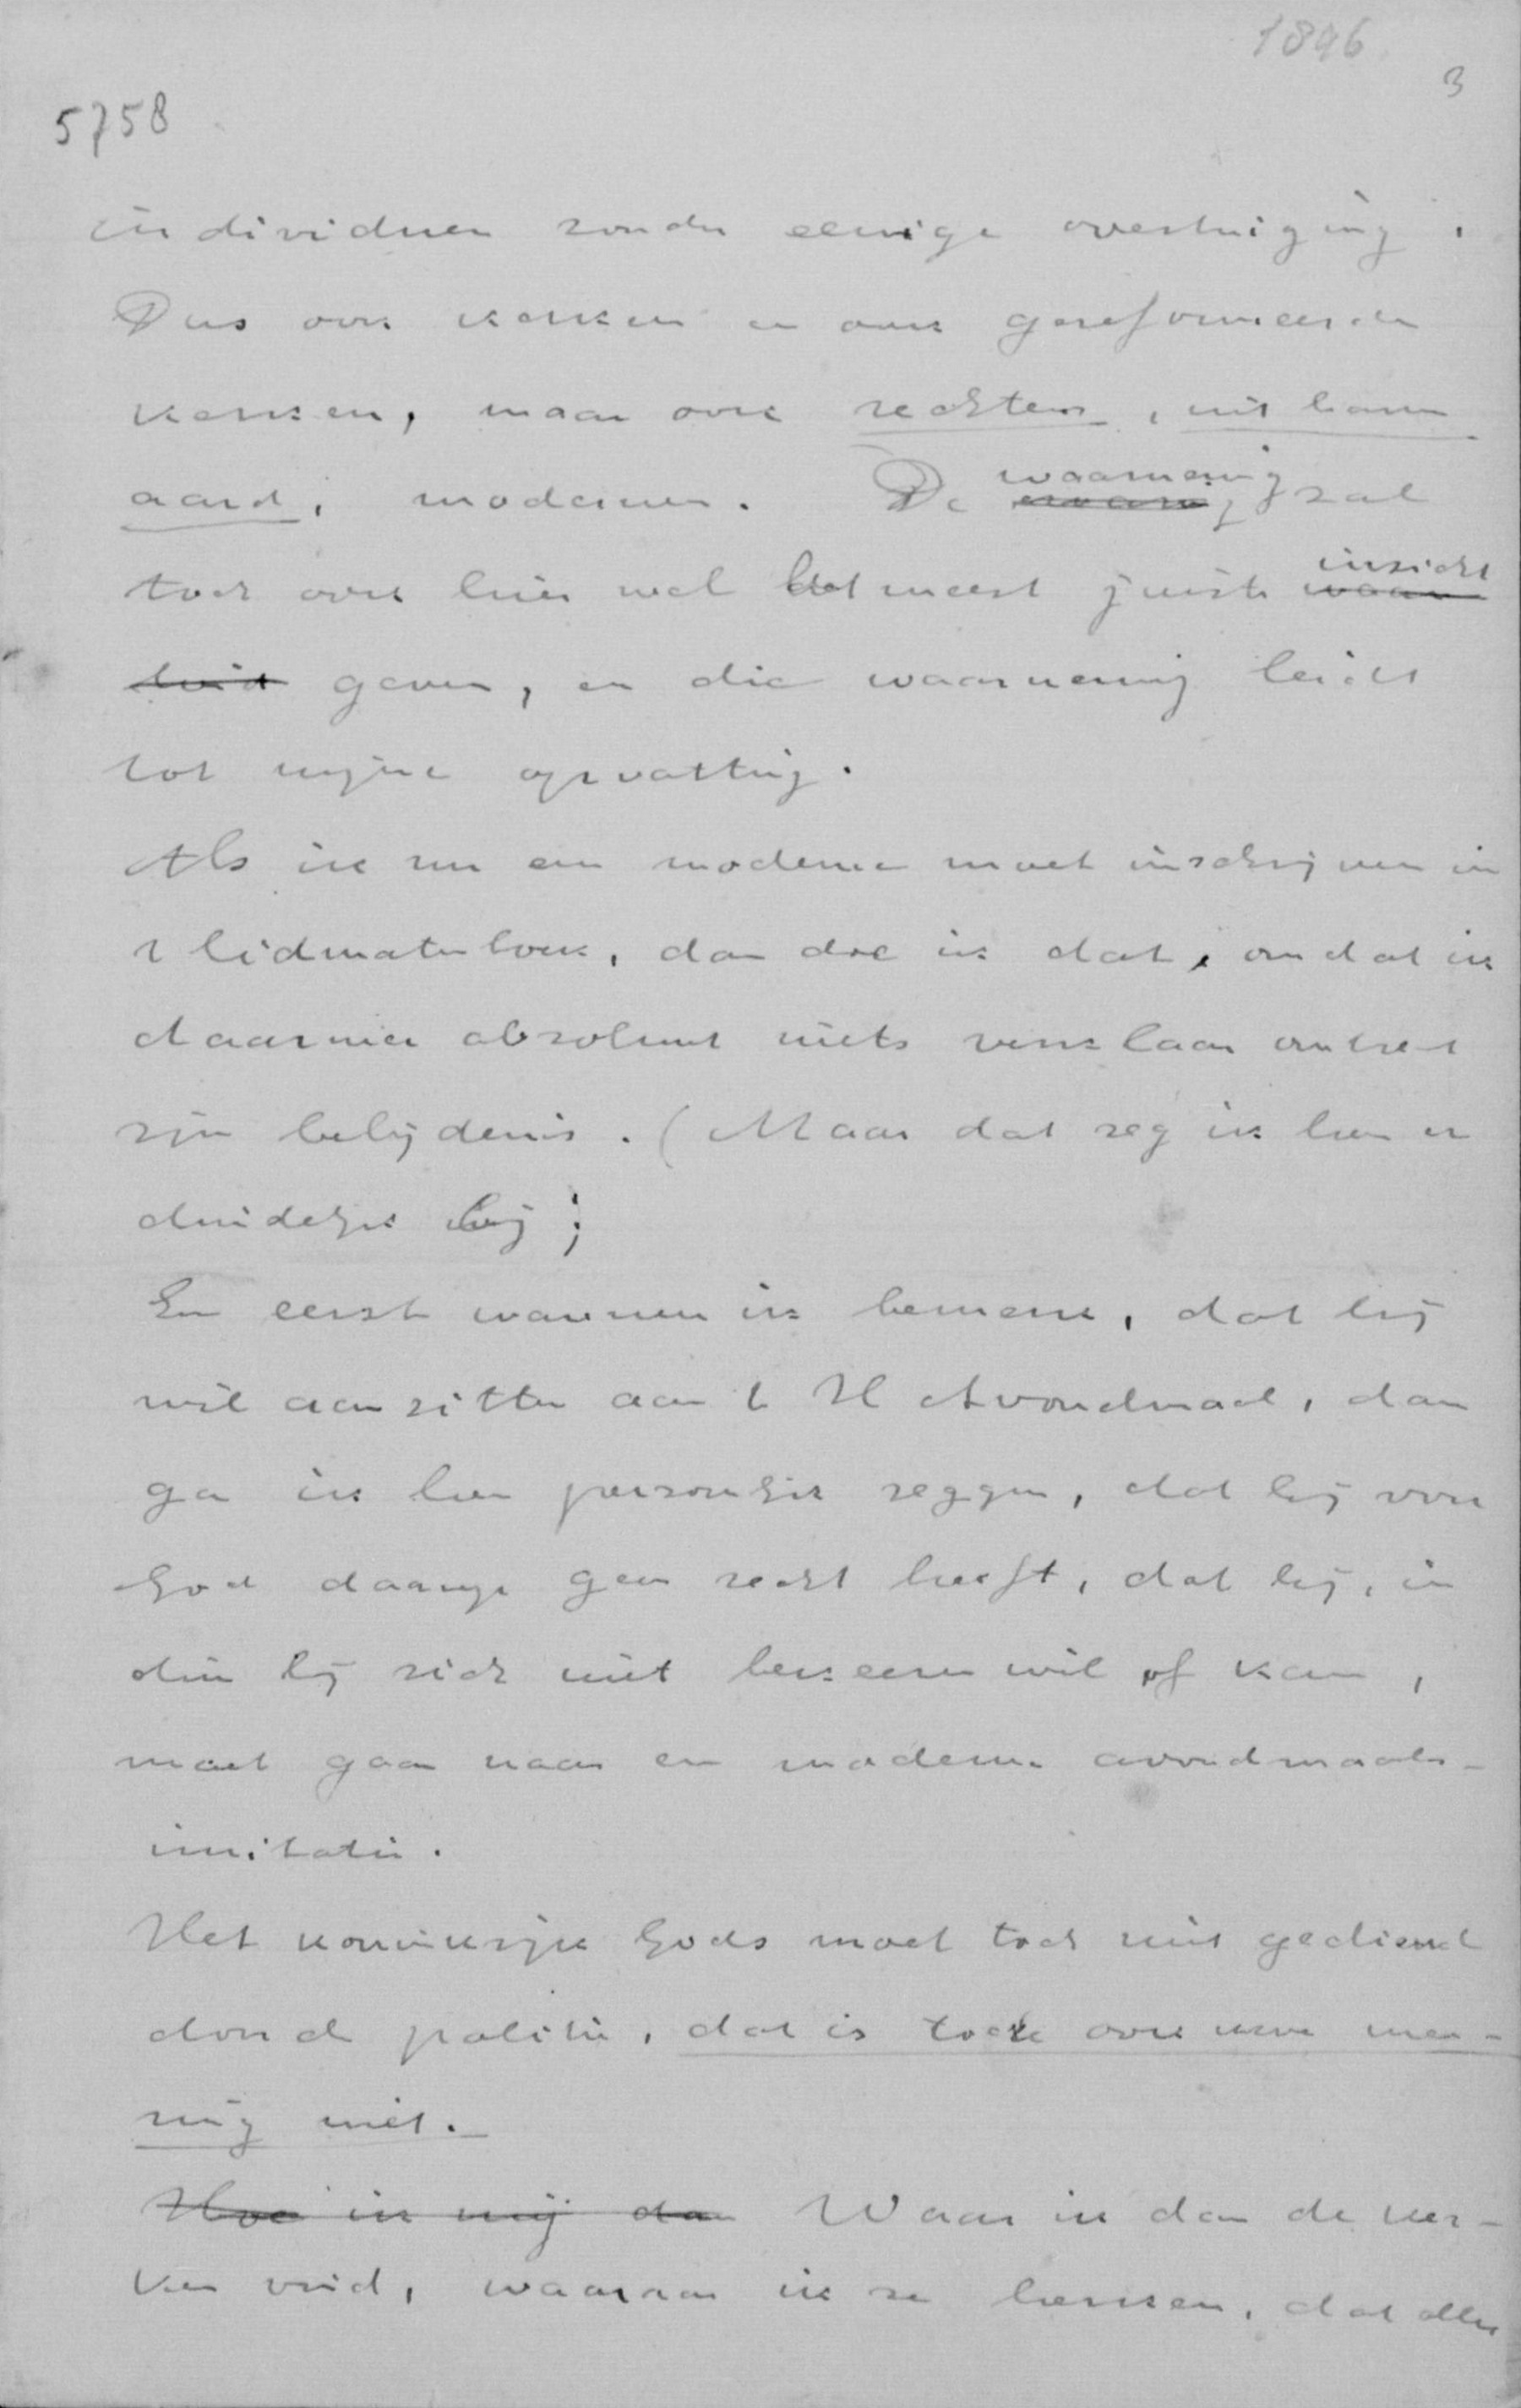 1896
3
5758
individuen zonder eenige overtuiging.
Dus ook kerken en ook gereformeerde
kerken, maar ook rechtens, uit haren
aard, modernen. De waarneming zal
toch ook hier wel het meest juiste inzicht
geven, en die waarneming leidt
tot mijne opvatting.
Als ik nu een moderne moet inschrijven in
't lidmatenboek, dan doe ik dat, omdat ik
daarmee absoluut niets verklaar omtrent
zijn belijdenis. (Maar dat zeg ik hem er
duidelijk bij;
En eerst wanneer ik bemerk, dat hij
wil aanzitten aan 't H Avondmaal, dan
ga ik hem persoonlijk zeggen, dat hij voor
God daartoe geen recht heeft, dat hij, in
dien hij zich niet bekeeren wil of kan,
moet gaan naar een moderne avondmaals-
imitatie.
Het koninkrijk Gods moet toch niet gediend
door de politie, dat is toch ook uwe mee-
ning niet.
Hoe ik mij dan Waar ik dan de ker-
ken vind, waaraan ik ze herken, dat alles